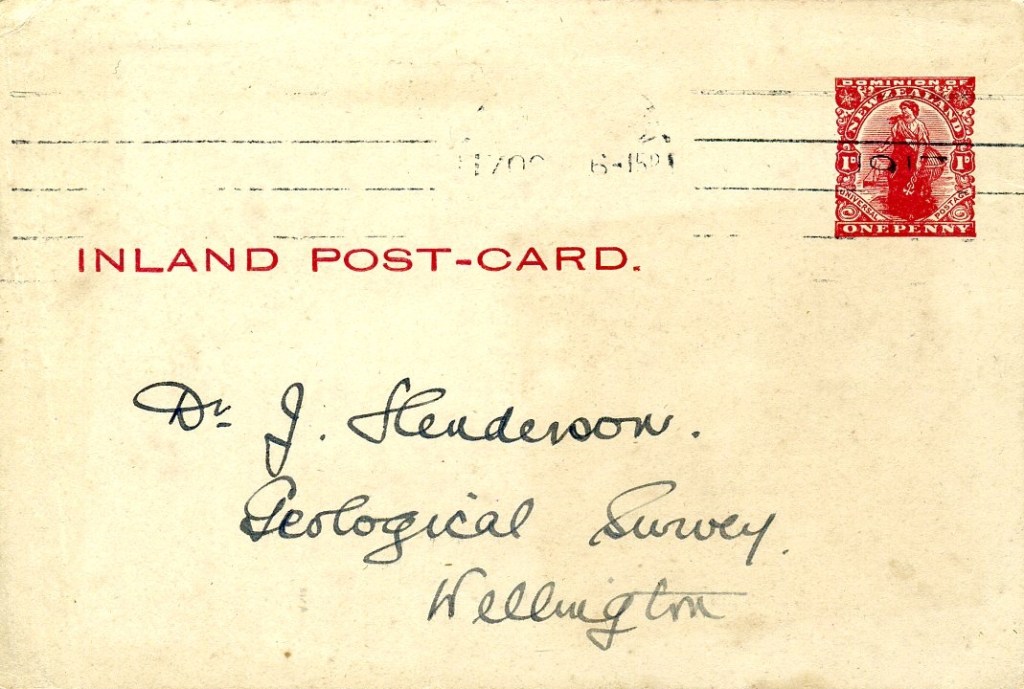 DOMINION OF
NEW ZEALAND
1D 1D
UNIVERSAL POSTAGE
ONE PENNY
1917
INLAND POST-CARD.
Dr. J. Henderson.
Geological Survey.
Wellington